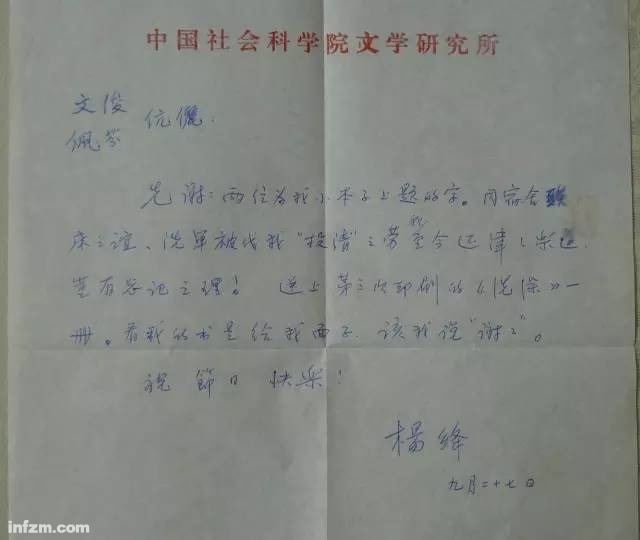 中国社会科学院文学研究所
文俊
佩芬 伉儷.
先谢谢两位为我小本子上题的字。同宿舍联
床之谊、洗单被代我“投清”之劳我至今还津津乐道
豈有忘记之理！ 送上第三次印刷的《洗澡》一
册。看我的书是给我面子 该我说“谢谢”。
祝 節日 快乐！
楊絳
九月二十七日
infzm.com